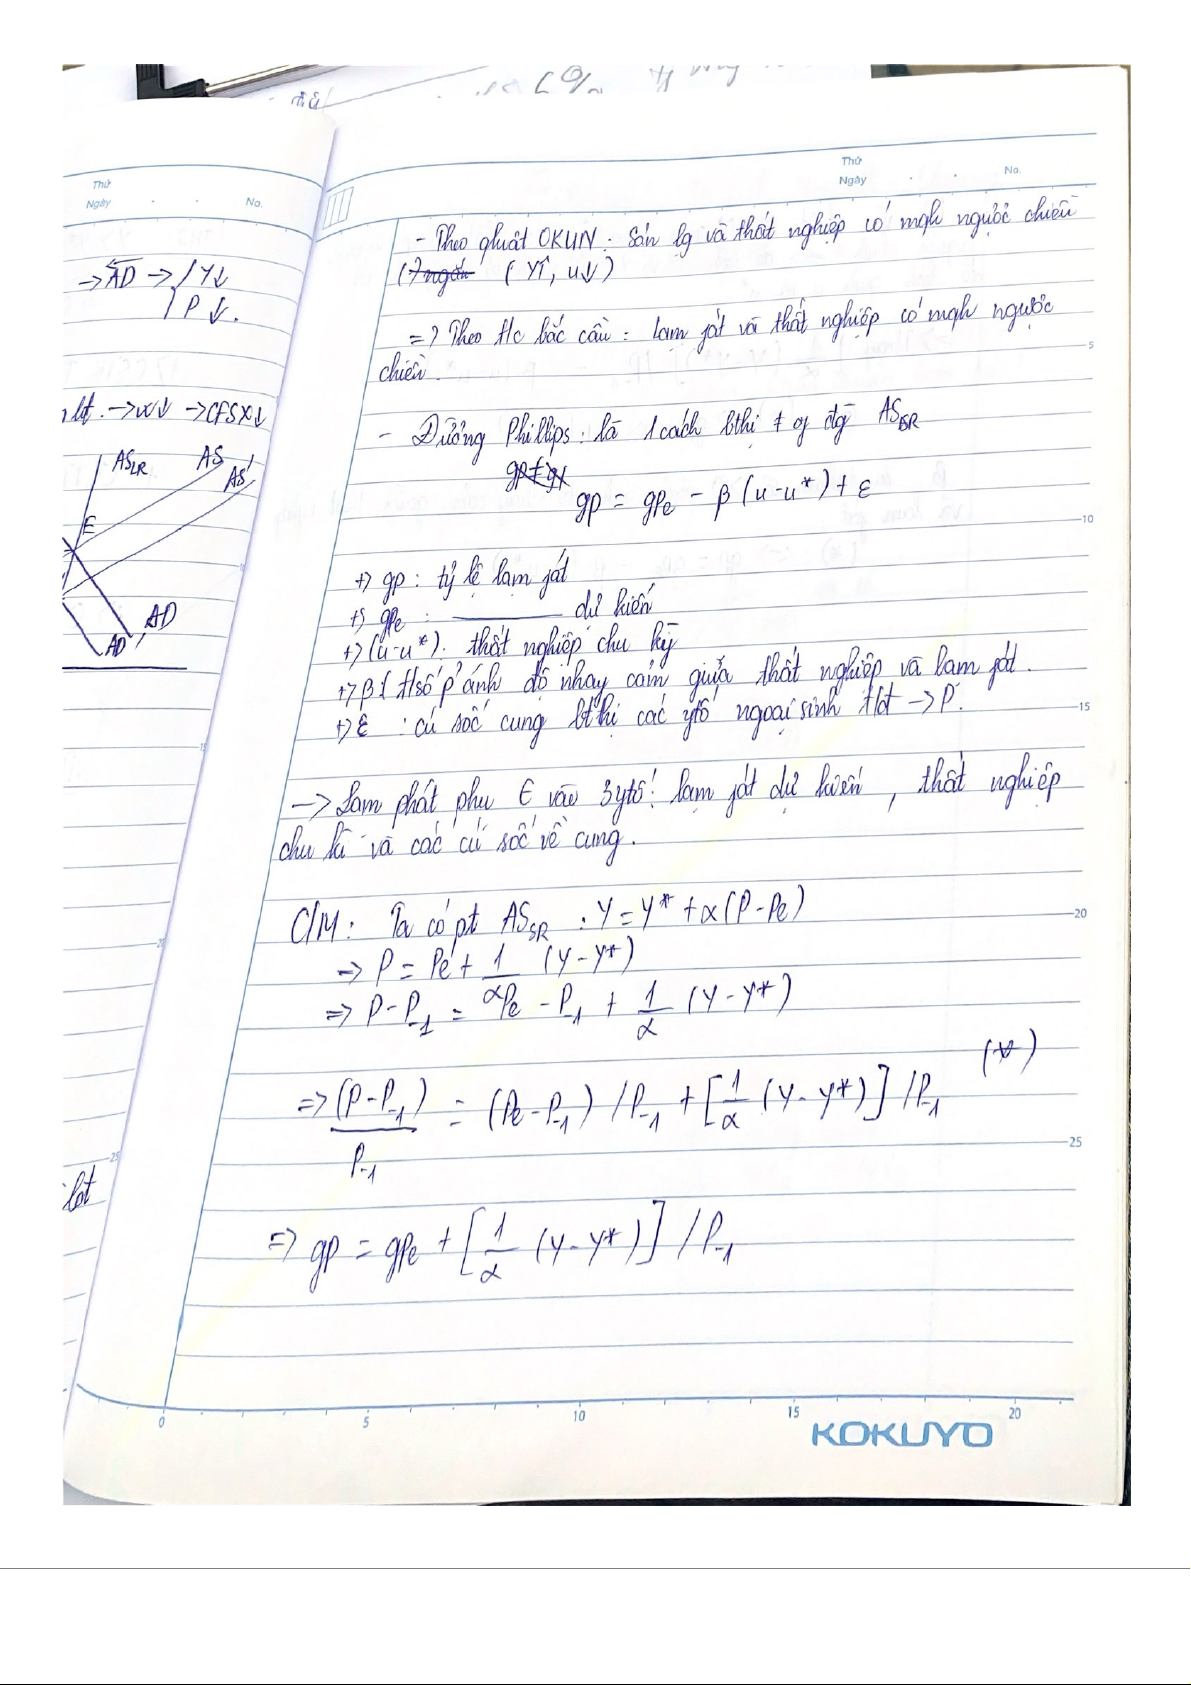 Thứ
Ngày . . No.
→ AD → / Y↓
P ↓.
lđ. → W↓ → CFSX↓
AS_LR AS
AS'
E
AD
AD'
lđt
Thứ
Ngày . . No.
- Theo qluật OKUN : Sản lg và thất nghiệp có mqh ngược chiều
(Y↑, u↓)
=> Theo t/c bắc cầu : lạm fát và thất nghiệp có mqh ngược
chiều.
- Đường Phillips : là 1 cách bthị ≠ of đg AS_SR
gp = gpe - β (u-u*) + ε
+) gp : tỷ lệ lạm fát
+) gpe : ———— dự kiến
+) (u-u*) : thất nghiệp chu kỳ
+) β : Hsố p/ánh độ nhạy cảm giữa thất nghiệp và lạm fát.
+) ε : cú sốc cung bthị các ytố ngoại sinh tđ → P.
→ Lạm phát phụ ∈ vào 3 ytố : lạm fát dự kiến , thất nghiệp
chu kì và các cú sốc về cung.
C/M : Ta có pt AS_SR : Y = Y* + α(P-Pe)
=> P = Pe + 1/α (Y-Y*)
=> P - P_-1 = Pe - P_-1 + 1/α (Y-Y*)
=> (P-P_-1)/P_-1 = (Pe-P_-1) / P_-1 + [1/α (Y-Y*)] / P_-1 (*)
=> gp = gpe + [1/α (Y-Y*)] / P_-1
5
10
15
20
25
0 5 10 15 20
KOKUYO